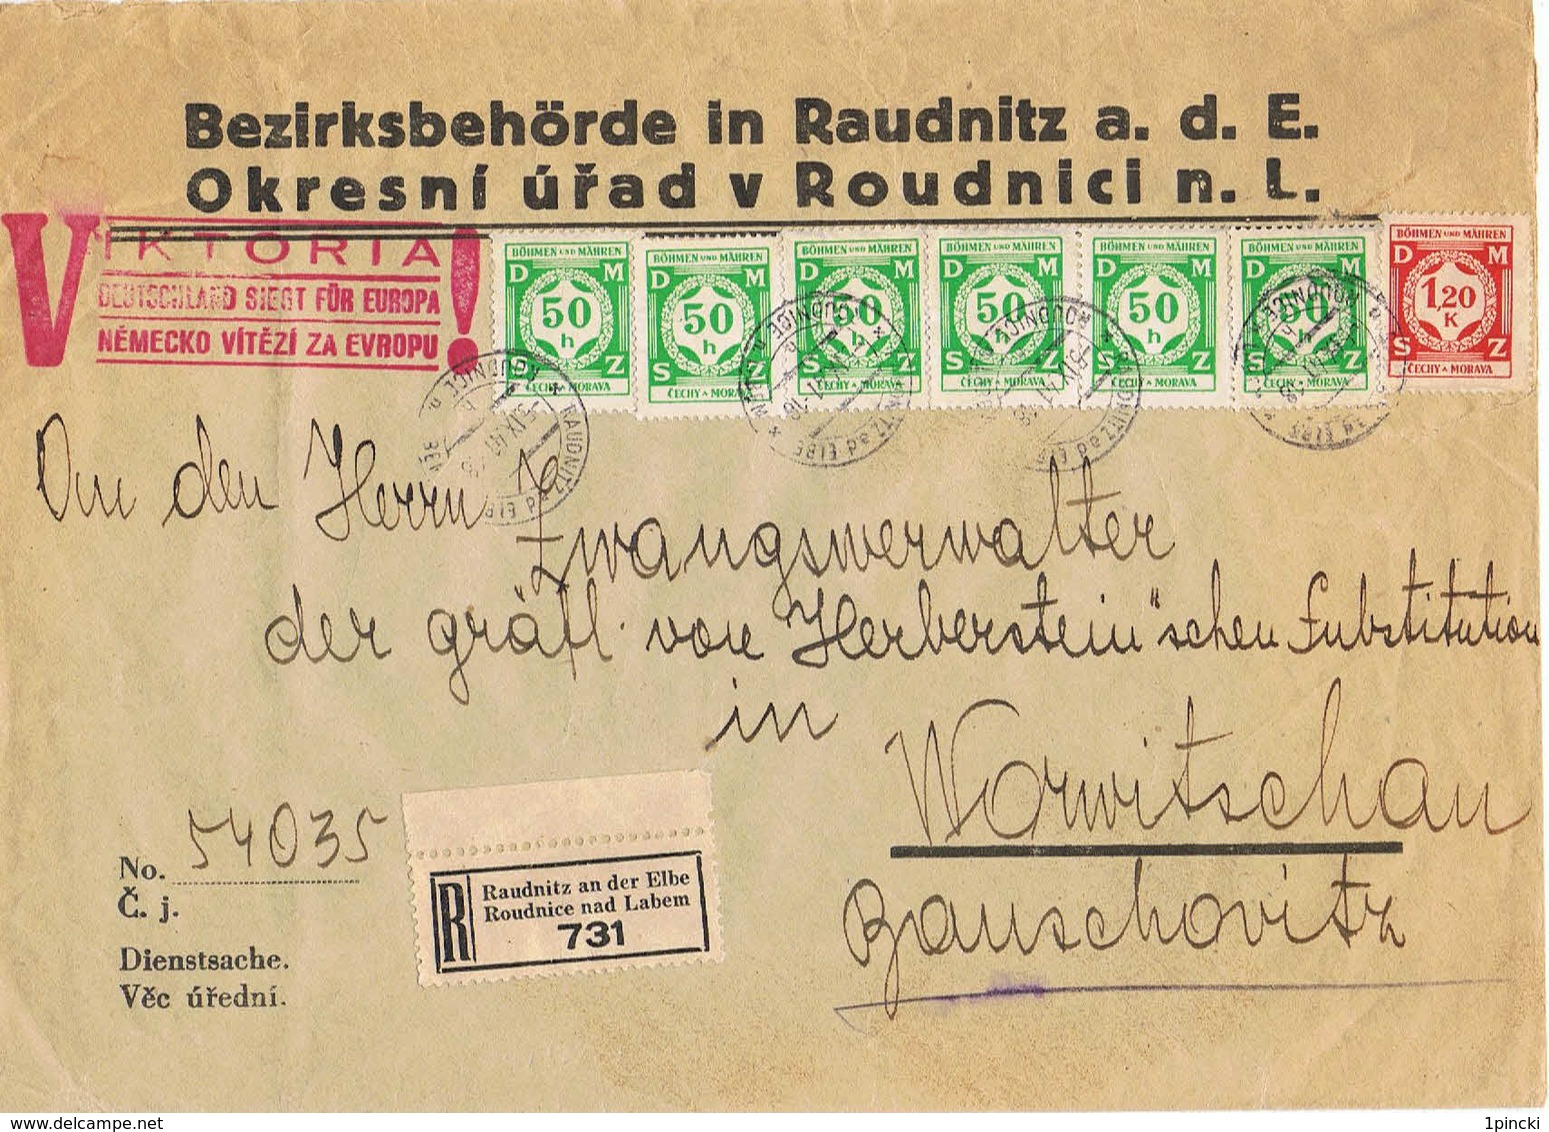 Bezirksbehörde in Raudnitz a. d. E.
Okresní úřad v Roudnici n. L.
VIKTORIA!
DEUTSCHLAND SIEGT FÜR EUROPA
NĚMECKO VÍTĚZÍ ZA EVROPU
BÖHMEN UND MÄHREN
D M
50
h
S Z
ČECHY A MORAVA
BÖHMEN UND MÄHREN
D M
50
h
S Z
ČECHY A MORAVA
BÖHMEN UND MÄHREN
D M
50
h
S Z
ČECHY A MORAVA
BÖHMEN UND MÄHREN
D M
50
h
S Z
ČECHY A MORAVA
BÖHMEN UND MÄHREN
D M
50
h
S Z
ČECHY A MORAVA
BÖHMEN UND MÄHREN
D M
50
h
S Z
ČECHY A MORAVA
BÖHMEN UND MÄHREN
D M
1,20
K
S Z
ČECHY A MORAVA
RAUDNITZ a d ELBE
An den Herrn
Zwangsverwalter
der gräfl. von "Herberstein"schen Substitution
in
Worwitschan
Bauschovitz
No. 54035
Č. j.
Dienstsache.
Věc úřední.
R
Raudnitz an der Elbe
Roudnice nad Labem
731
delcampe.net
1pincki